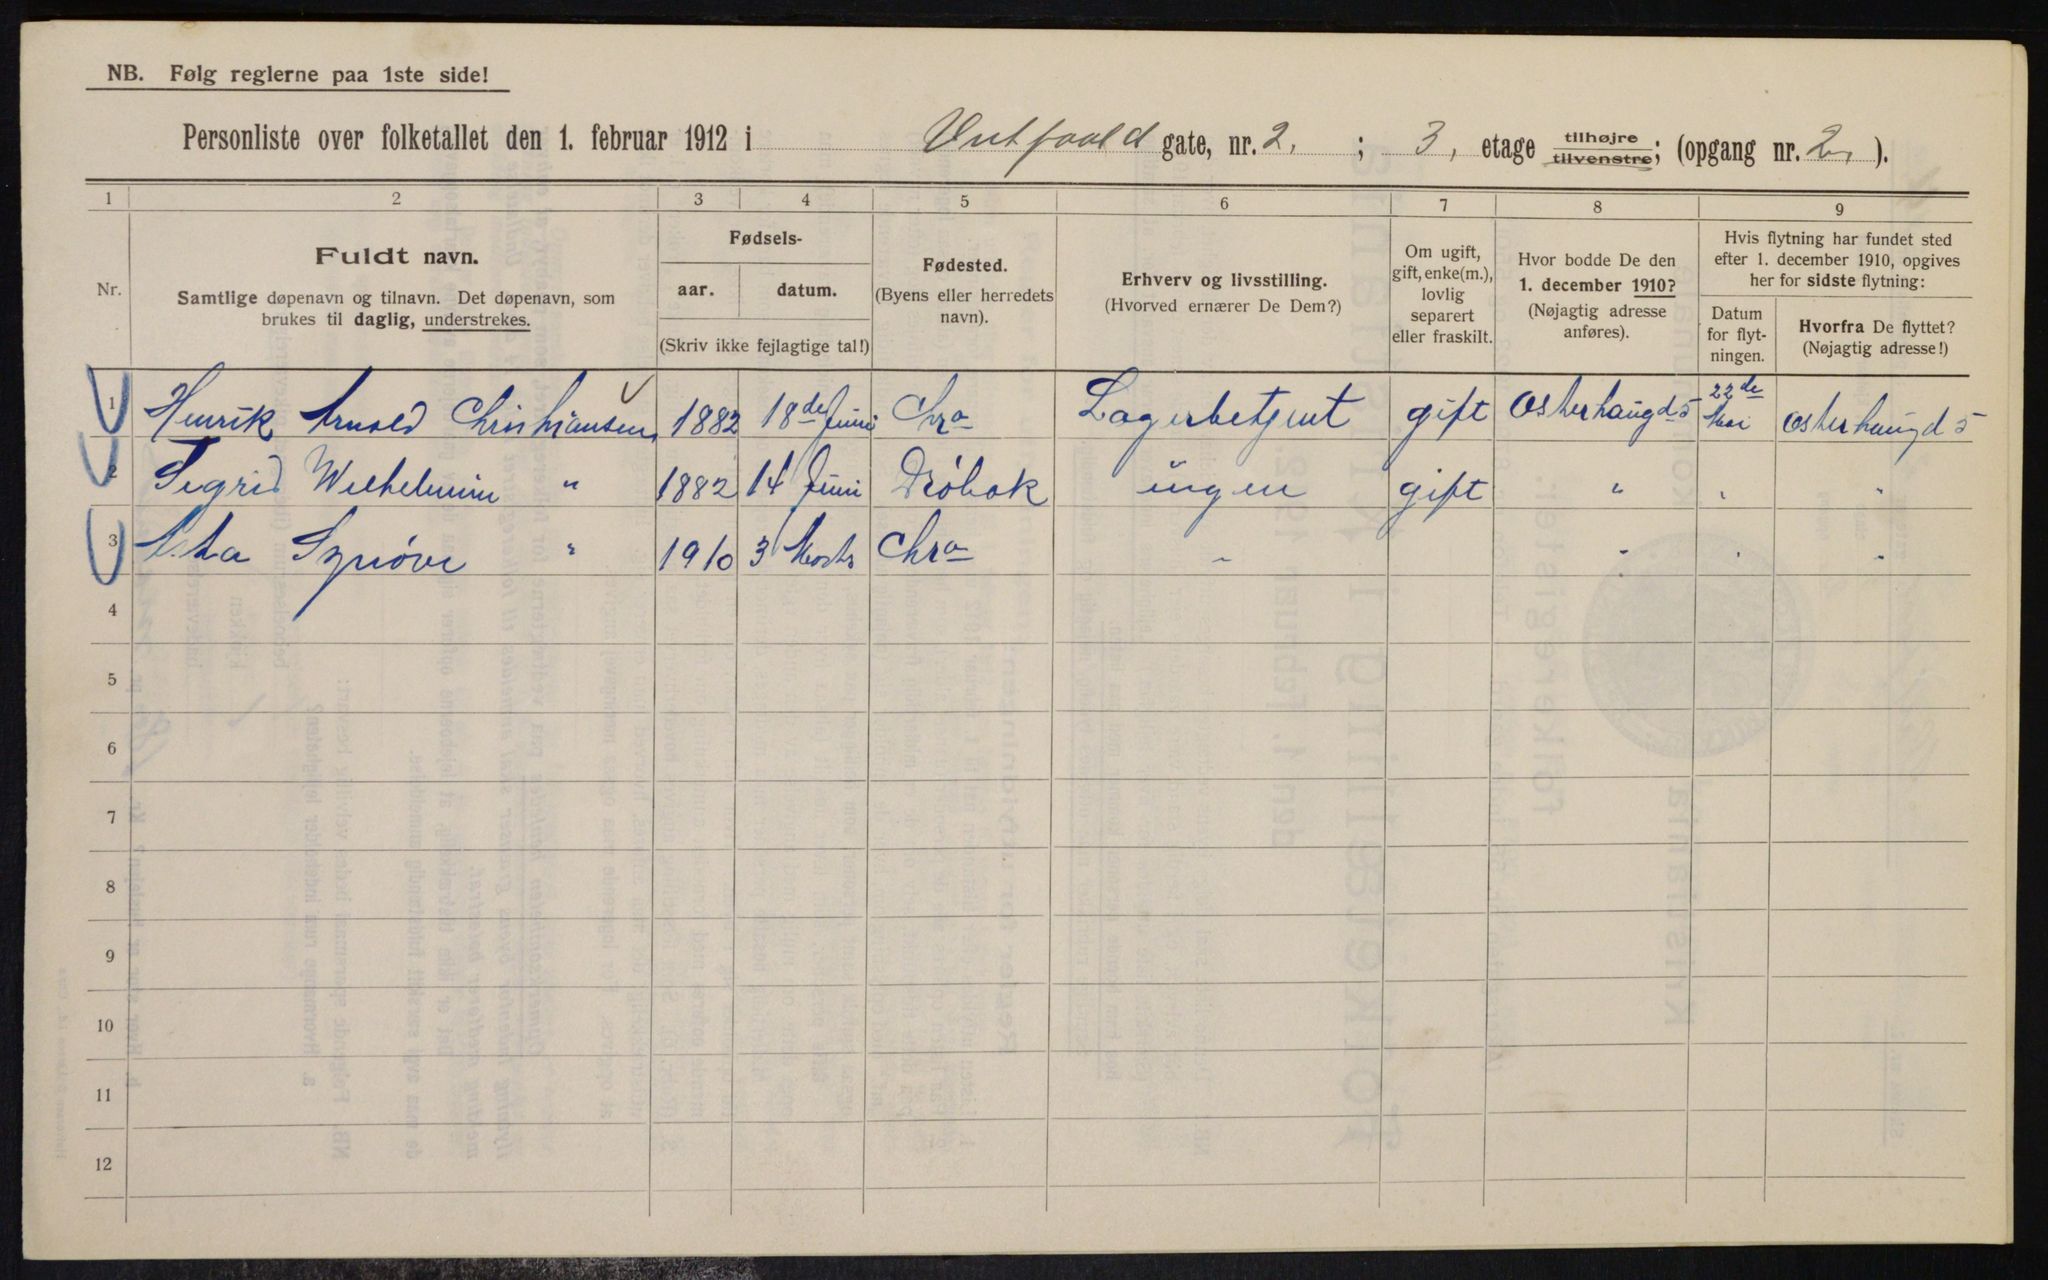 NB. Følg reglerne paa 1ste side!
Personliste over folketallet den 1. februar 1912 i gate, nr. 2. ; 3, etage tilhøjre tilvenstre; (opgang nr. 2, ).
1 2 3 4 5 6 7 8 9
Nr.
Fuldt navn.
Samtlige døpenavn og tilnavn. Det døpenavn, som
brukes til daglig, understrekes.
Fødsels-
aar. datum.
(Skriv ikke fejlagtige tal!)
Fødested.
(Byens eller herredets
navn).
Erhverv og livsstilling.
(Hvorved ernærer De Dem?)
Om ugift,
gift, enke(m.),
lovlig
separert
eller fraskilt.
Hvor bodde De den
1. december 1910?
(Nøjagtig adresse
anføres).
Hvis flytning har fundet sted
efter 1. december 1910, opgives
her for sidste flytning:
Datum
for flyt-
ningen.
Hvorfra De flyttet?
(Nøjagtig adresse!)
1 Henrik Arnold Christiansen 1882 18de Juni Chra Lagerbetjent gift Osterhaugd 5 22de Mai Osterhaugd 5
2 Sigrid Wilhelmine " 1882 14 Juni Dröbak ingen gift " " "
3 Synöve " 1910 3 Chra " " " "
4
5
6
7
8
9
10
11
12